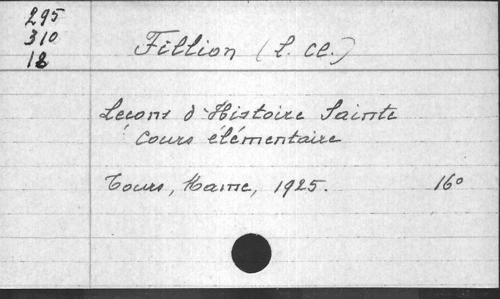 295
310
18
Fillion (L. Cl.)
Leçons d'Histoire Sainte
Cours élémentaire
Tours, Mame, 1925. 16°